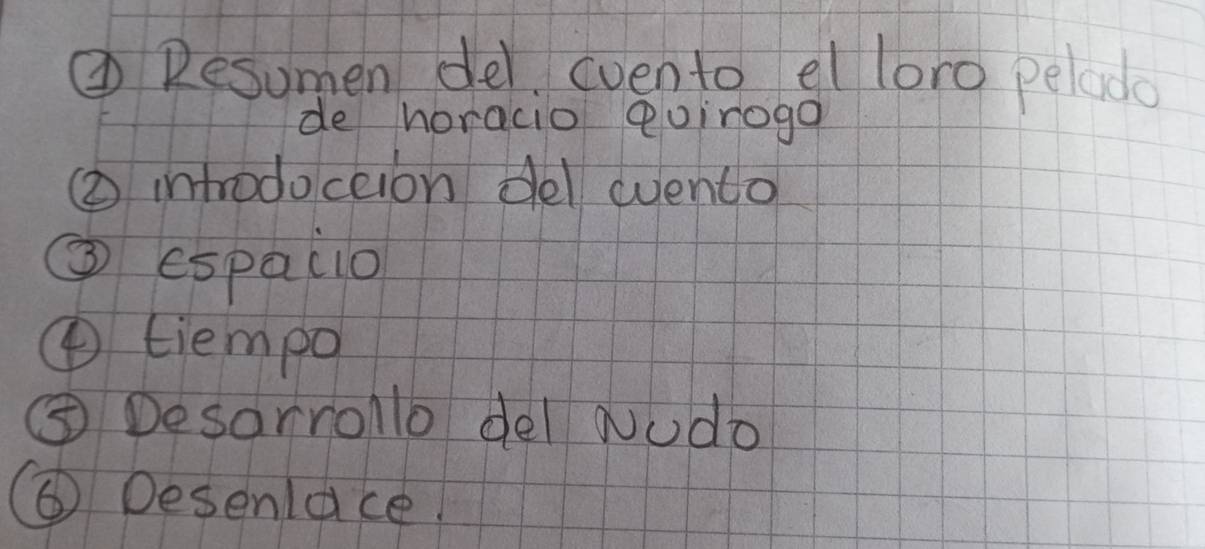 ① Resumen del. cuento el loro pelado
de horacio Quiroga
② introduccion del cuento
③ espacio
④ tiempo
⑤ Desarrollo del Nudo
⑥ Desenlace.